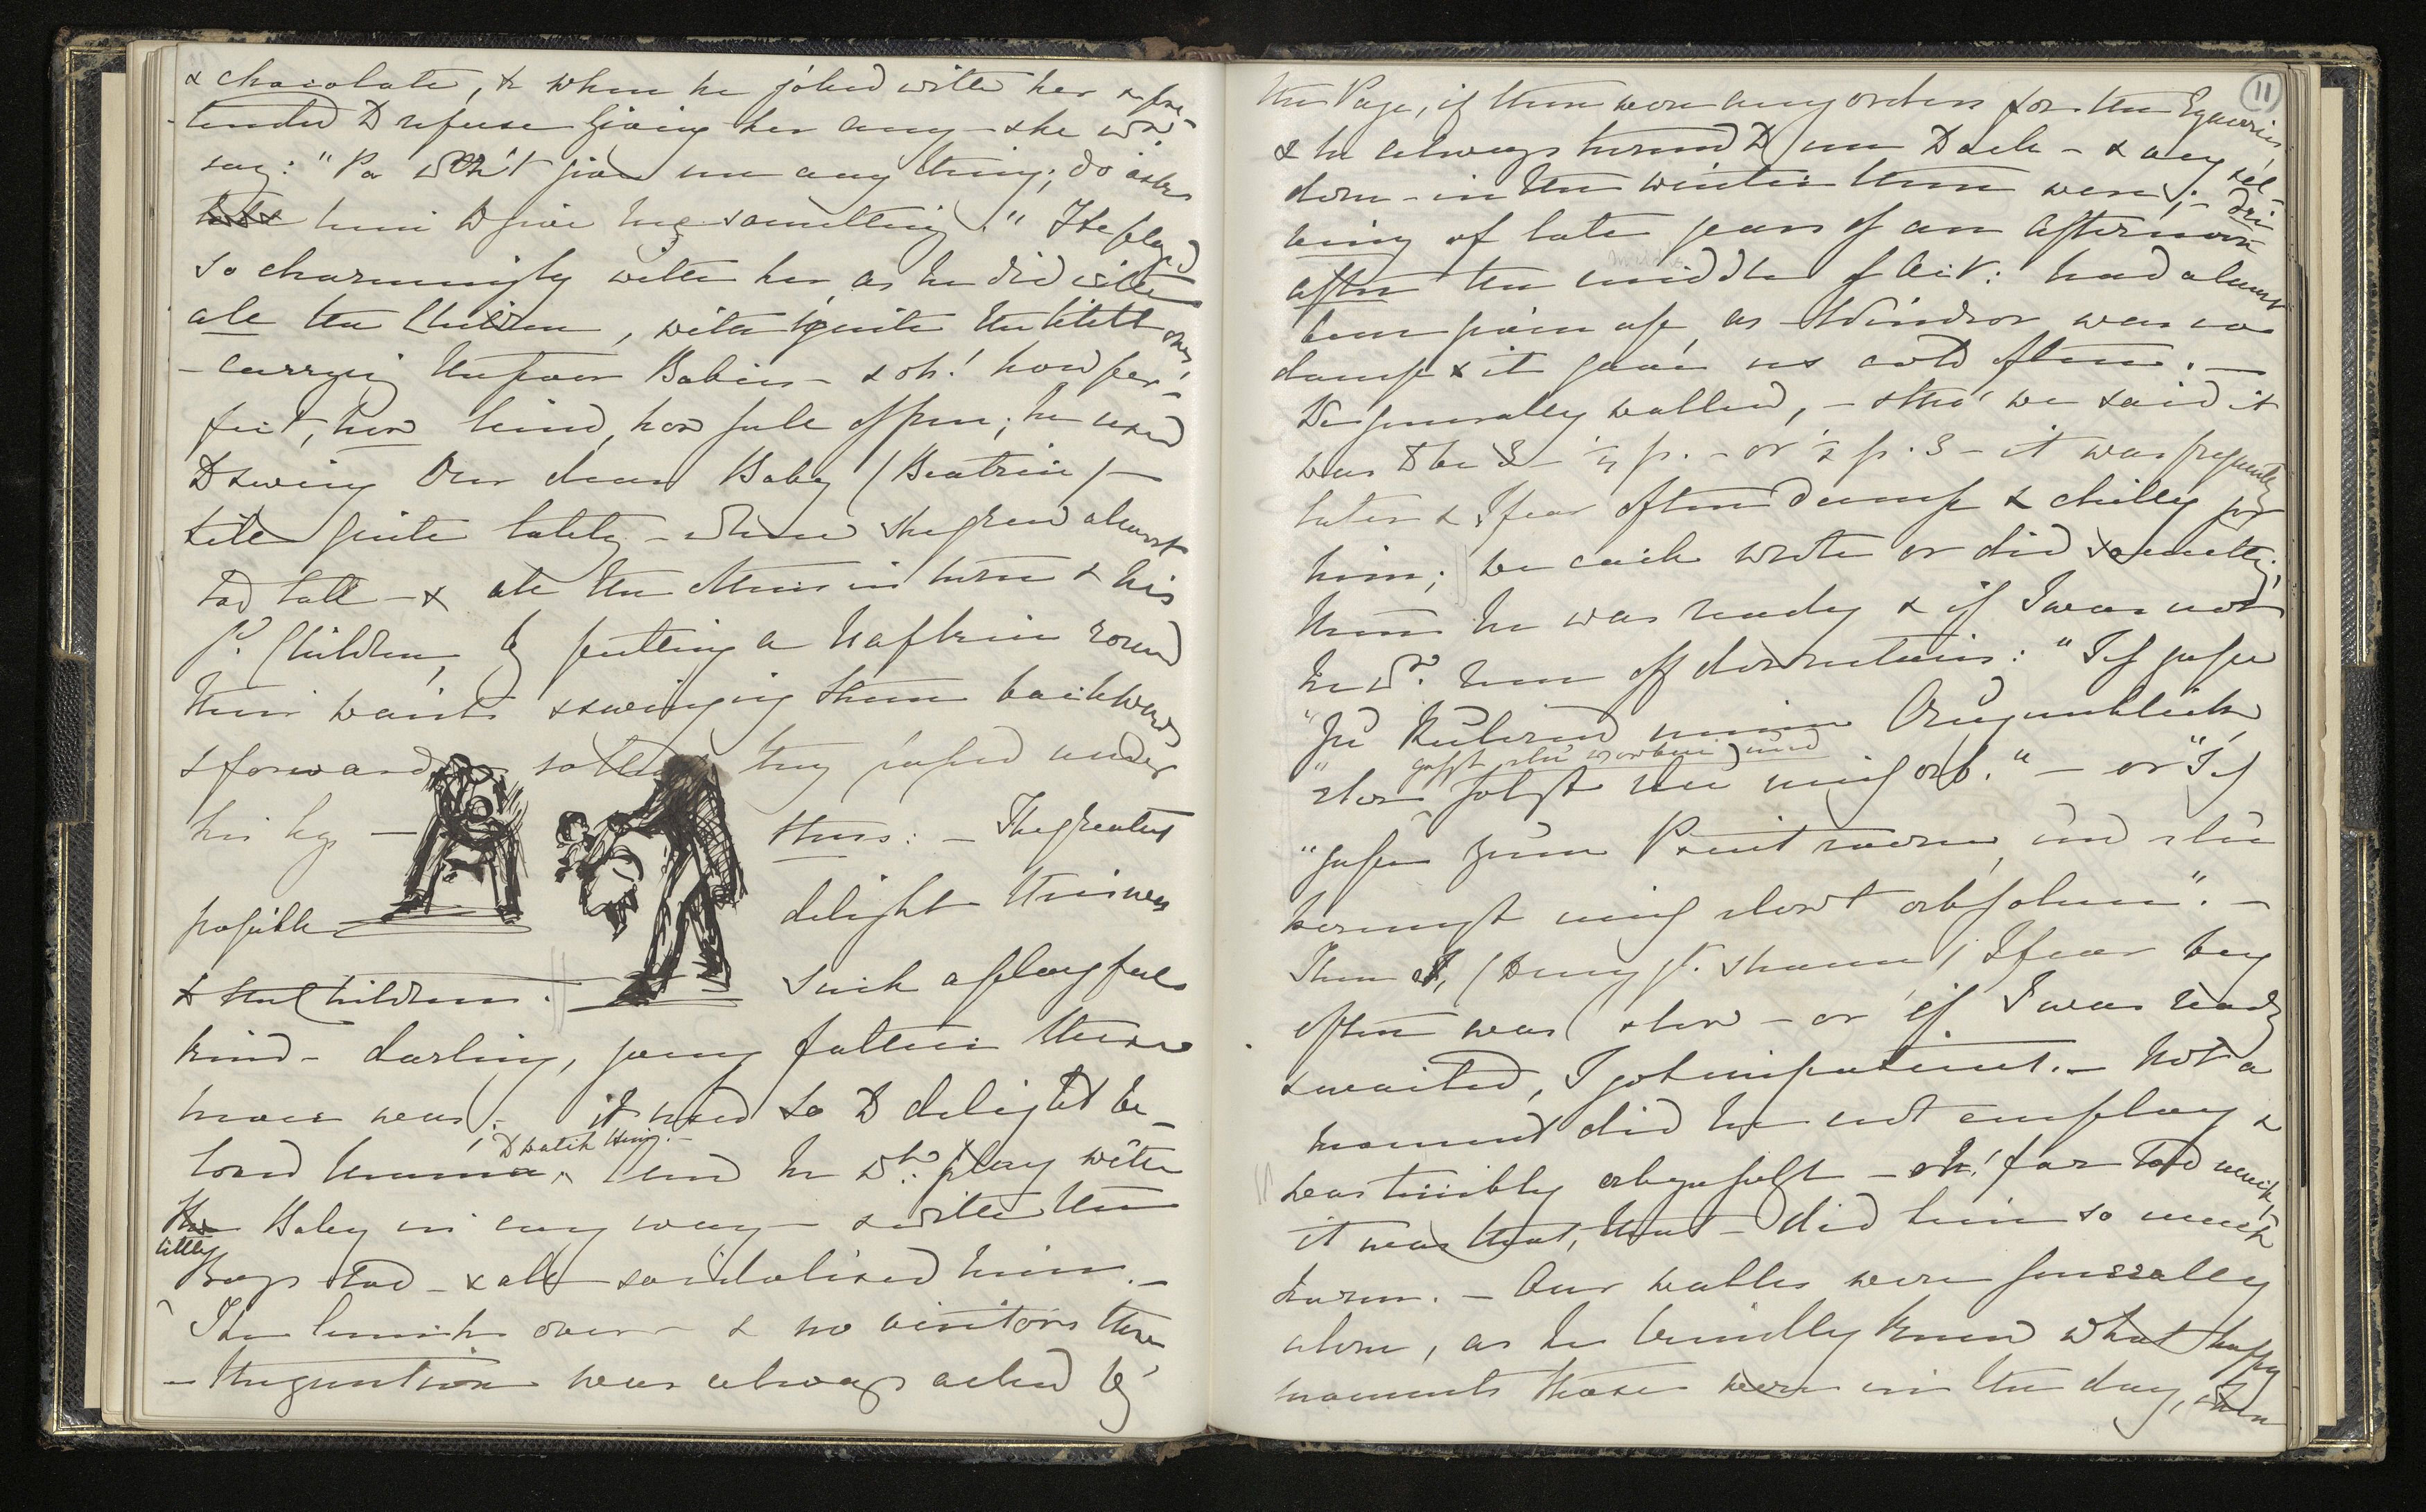 & chocolate, & when he joked with her & pre-
tended to refuse giving her any – she wd
say: "Pa won't give me any thing; do ask
him to give me something." He played
so charmingly with her, as he did with
all the Children, with quite the little ones,
– carrying the poor Babies – & oh! how per-
fect, how kind, how full of fun; he used
to swing our dear Baby (Beatrice) –
till quite lately – when she grew almost
too tall – & all the others in turn & his
gd Children, by putting a Napkin round
their waists & swinging them backwards
& forwards so that they passed under
his legs – thus: – The greatest
possible delight this was
to the Children. Such a playful
kind – darling, young father there
never was; – it used so to delight be-
to watch this. –
loved Mama, & he wd play with
the Baby in any way – & with the
little
Boys too – & all so idolised him. –
The lunch over – & no visitors there
– the question was always asked by
11
the Page, if there were any orders for the Equerries,
& he always turned to me to ask – & very sel-
dom – in the winter there were; – Dri-
ving of late years of an afternoon
after the middle of Oct: had almost
been given up, as Windsor was so
damp & it gave us cold often. –
We generally walked, – & tho' we said it
was to be 3 – ¼ p. – or ½ p. 3 – it was frequently
later & I fear often damp & chilly for
him; we each wrote or did something;
then he was ready & if I was not
he wd run off downstairs: "Ich gehe
"zu Ruland einen Augenblick,
gehst Du vorbei, und
"da holst Du mich ab." – or "Ich
"gehe zum Printroom, und Du
kommst mich dort abholen". –
Then I, (to my gt shame) I fear very
often was slow – or if I was ready
& waited, I got impatient. – Not a
moment did he not employ &
was terribly abgehetzt – oh! far too much,
it was that, that – did him so much
harm. – Our walks were generally
alone, as he kindly knew what happy
moments those were in the day, when